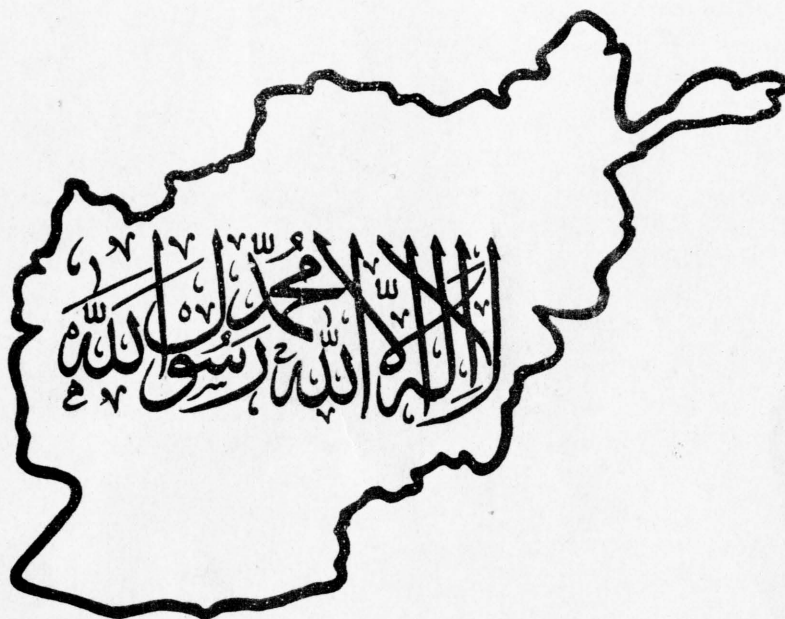 لا إله إلّا الله مُحمّد رسُول الله